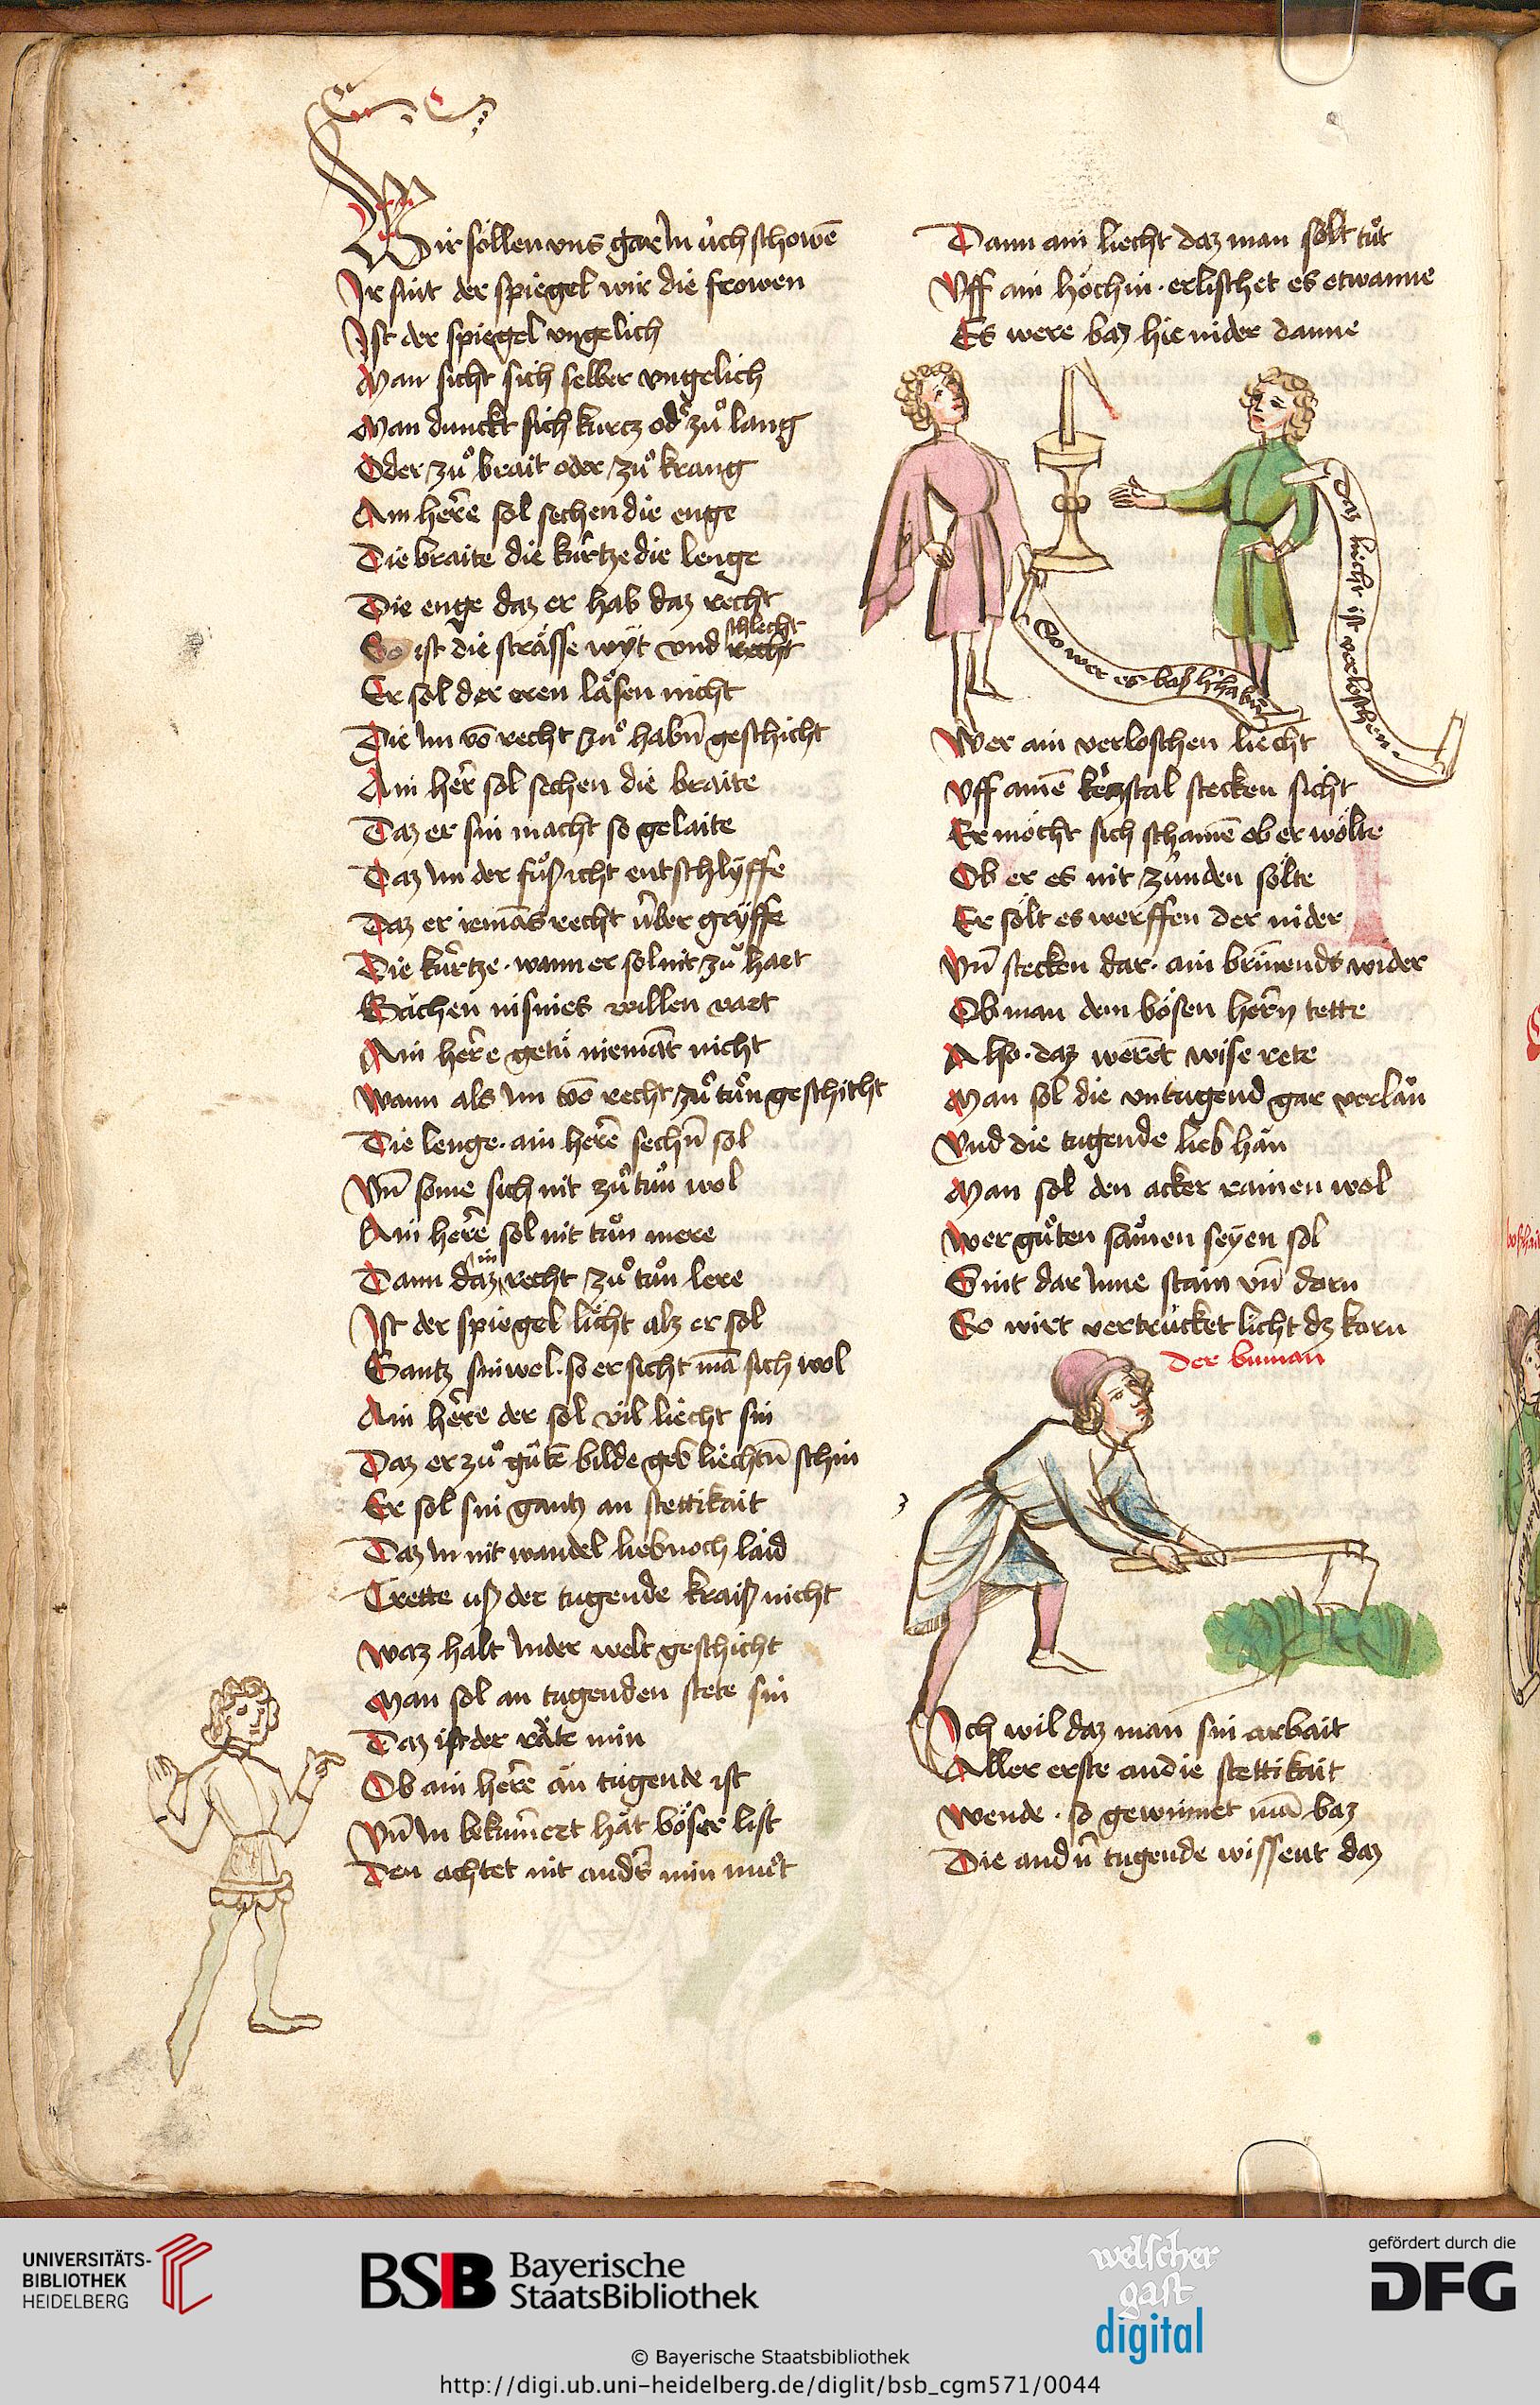 Wir söllen vns gar jn v̂ch schowē
Jr sint der spiegel wir die frowen
Jst der spiegel vngelich
Man sicht sich selber vngelich
Man dunckt sich kurcz od͛ zuͦ lang
Oder zuͦ brait oder zuͦ krang
Ain her̄e sol sechen die enge
Die braite die kúrtze die lenge
Die enge daz er hab daz recht
So ist die strässe wyt vnd recht schlecht
Er sol der eren läsen nicht
Die jm vō recht zuͦ habn̄ geschicht
Ain her̄ sol sechen die braite
Daz er sin macht so gelaite
Daz jm der fuͦß icht entschlyffe
Daz er iemās recht v́ber gryffe
Die kúrtze · wann er sol nit zuͦ hart
Gächen
Ain her̄e getuͦ niemāt nicht
Wann als jm vō recht zuͦ tuͦn geschicht
Die lenge · ain her̄e sechn̄ sol
Vn̄ some sich nit zuͦ tuͦn wol
Ain her̄e sol nit tuͦn mere
Dann daz in recht zuͦ tuͦn lere
Jst der spiegel liecht alz er sol
Gantz sinwel · so er sicht mā sich wol
Ain her̄e der sol vil liecht sin
Daz er zuͦ guͦtē bilde geb liechtn̄ schin
Er sol sin gantz an stettikait
Daz jn nit wandel lieb noch laid
Trette uß der tugende kraiß nicht
Waz halt jnder welt geschicht
Man sol an tugenden stete sin
Daz ist der räte min
Ob ain her̄e än tugende ist
Vn̄ jn bekūmert hät böser list
Den achtet nit and͛s min muͦt
Dann ain liecht daz man sölt tuͦt
Vff ain höchin · erlischet es etwanne
Es were baz hie nider danne
Daz liecht ist verloschen
So wer es baß hin ab
Wer ain verloschen liecht
Vff ainē kerzstal stecken sicht
Er möcht sich schamē ob er wölte
Ob er es nit zúnden sölte
Er sölt es werffen der nider
Vn̄ stecken dar · ain brinnends wider
Ob man dem bösen hern̄ tette
Also · daz werēt wise rete
Man sol die vntugend gar verlän
Vnd die tugende lieb hän
Man sol den acker rainen wol
Wer guͦten sämen seyen sol
Sint dar jnne stain vn̄ dorn
Er wirt vertrúcket licht dz korn
Der buman
Jch wil daz man sin arbait
Aller erste an die stettikait
Wende · so gewinnet mā baz
Die andn̄ tugende wissent daz
UNIVERSITÄTS-
BIBLIOTHEK
HEIDELBERG
BSB Bayerische
StaatsBibliothek
welscher
gast
digital
gefördert durch die
DFG
© Bayerische Staatsbibliothek
http://digi.ub.uni-heidelberg.de/diglit/bsb_cgm571/0044